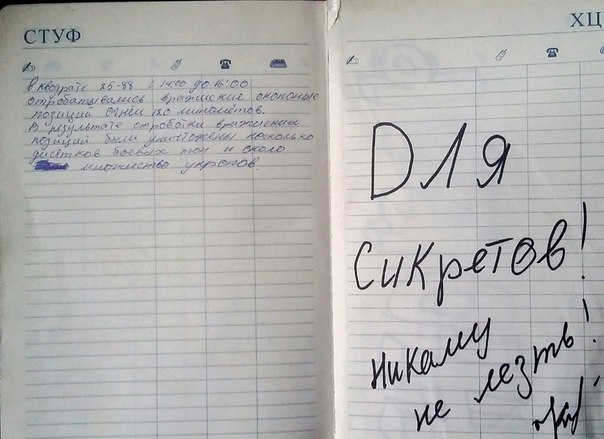 СТУФ
В квадрате 25-88 с 14:00 до 16:00
отрабатывались вражиские окопные
позиции огнём 120 минометов.
В результате отработки вражиских
позиций были уничтожены несколько
дисятков боевых тон и около
множиство укропов.
ХЦ
Для
сикретов!
никаму
не лезть!